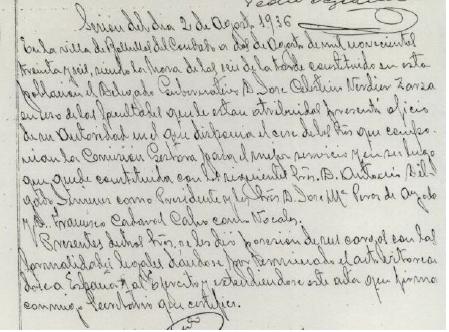 Sesion del dia 2 de Agosto 1936
En la villa de del Condado a dos de Agosto de mil novecientos
treinta y seis, siendo la hora de las seis de la tarde constituido en esta
poblacion el Delegado Gubernativo D. Jose Celestino Verdier Zarza
en uso de las facultades que le estan atribuidas presentó oficio
de su Autoridad en el que disponia el cese de los Sres que compo-
nian la Comisión Gestora para el mejor servicio y en su lugar
que quede constituida con los Sres. D. Antonio
Jimenez como Presidente y los Sres D. Jose Mª Perez de Ayala
y D. Francisco Calvo como Vocales.
Presentes dichos Sres, se les dió posesion de sus cargos con las
formalidades legales dandose por terminado el acto
a España y al Ejercito y extendiendose esta acta que firma
conmigo Secretario que certifico.